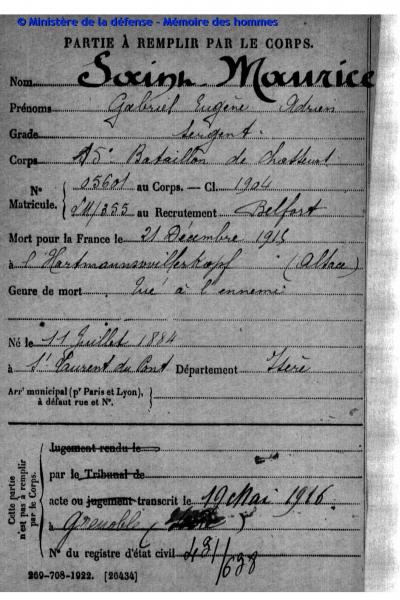 © Ministère de la défense - Mémoire des hommes
PARTIE À REMPLIR PAR LE CORPS.
Nom Saint Maurice
Prénoms Gabriel Eugène Adrien
Grade Sergent.
Corps 15e Bataillon de Chasseurs
No Matricule. 05601 au Corps. — Cl. 1904
/355 au Recrutement Belfort
Mort pour la France le 21 Décembre 1915
à l'Hartmannswillerkopf (Alsace)
Genre de mort Tué à l'ennemi
Né le 11 Juillet 1884
à St Laurent du Pont Département Isère
Arrt municipal (pr Paris et Lyon), à défaut rue et No.
Cette partie n'est pas à remplir par le Corps.
Jugement rendu le
par le Tribunal de
acte ou jugement transcrit le 19 Mai 1916
à Grenoble ( )
No du registre d'état civil 431/638
269-708-1922. [26434]